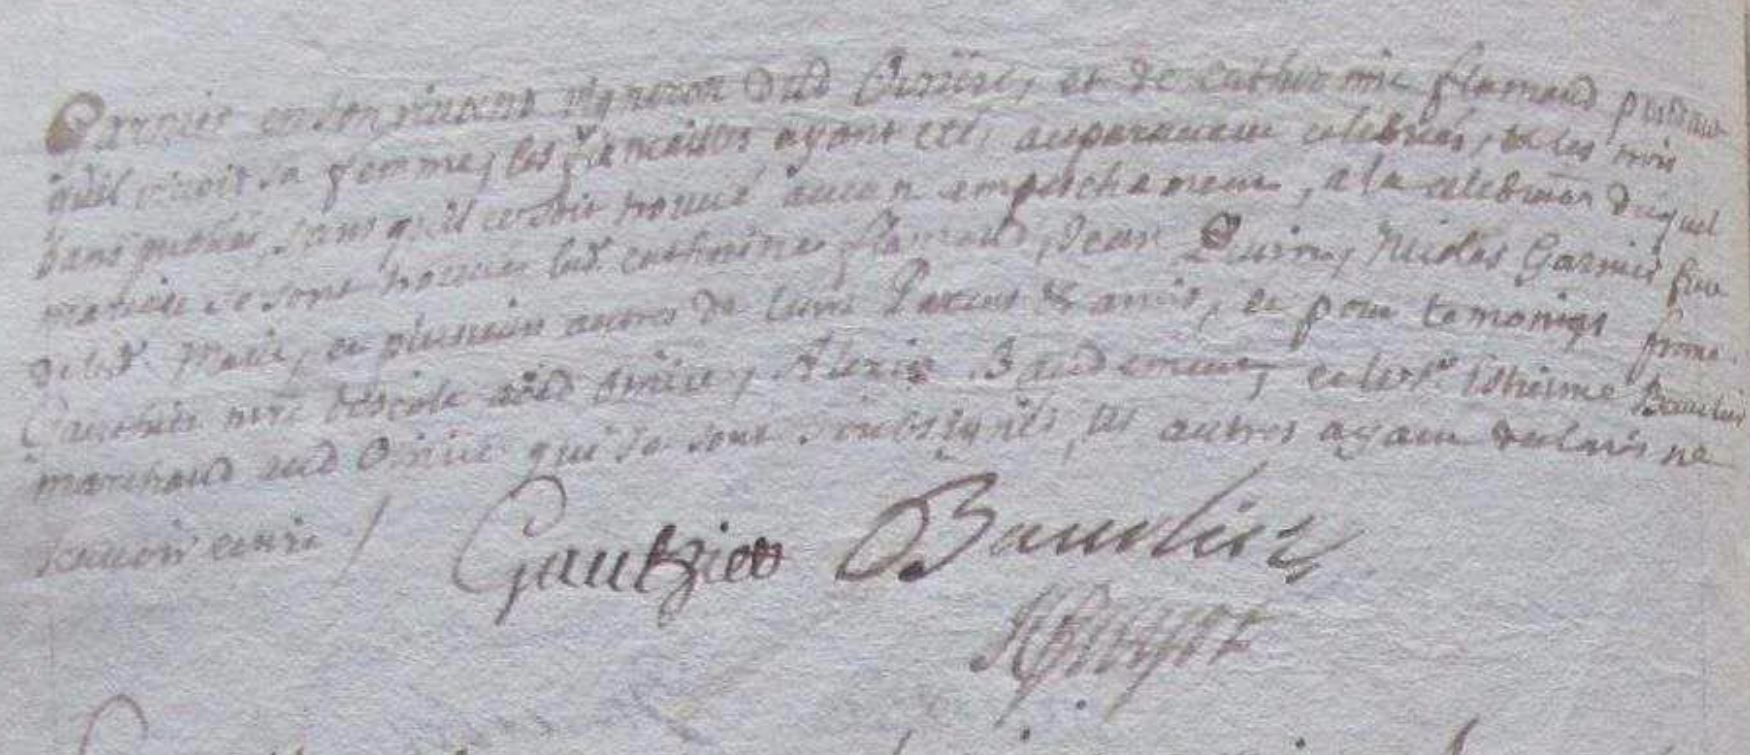 Garnier en son vivant vigneron dud Omicir, et de catherinne flamand pendant
qu'il vivoit sa femme, les fiancailles ayant eté auparavant celebrées, et les trois
bans publiés, sans qu'il en soit trouvé aucun empeschement, a la celebration duquel
mariage se sont trouvés lad. catherinne flamand, Jean Nicolas Garnier frere
dud. Marié, et plusieurs autres de leurs Parens & amis, et pour temoings
Gauthier mre d'escole aud Alexis Baudement, et Estienne Baudier
marchand aud qui se sont soubsignés, les autres ayant declarés ne
scavoir ecrire /
Gauthier Baudier